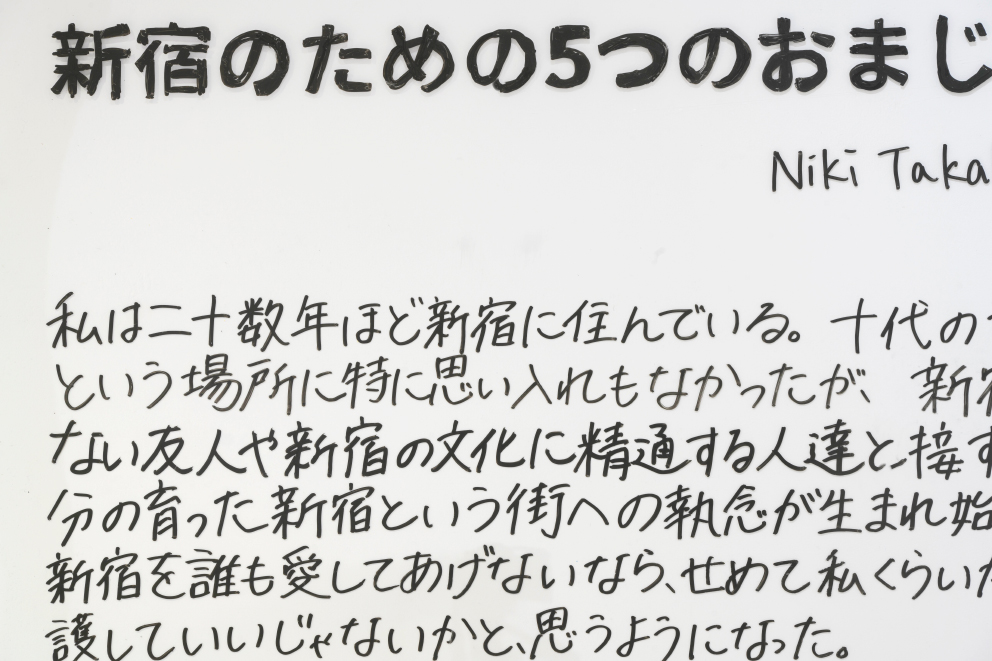 新宿のための5つのおまじ
Niki Taka
私は二十数年ほど新宿に住んでいる。十代の
という場所に特に思い入れもなかったが、新宿
ない友人や新宿の文化に精通する人達と接す
分の育った新宿という街への執念が生まれ始
新宿を誰も愛してあげないなら、せめて私くらいた
護していいじゃないかと、思うようになった。